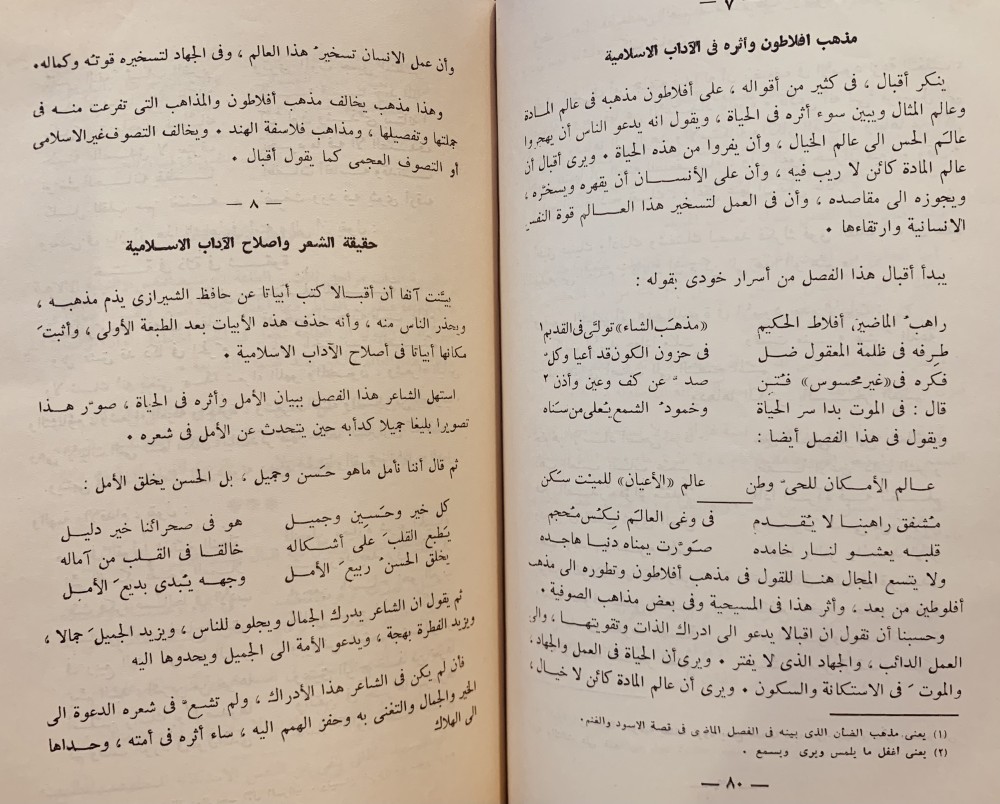 — ٧
مذهب افلاطون وأثره فى الآداب الاسلامية
ينكر أقبال ، فى كثير من أقواله ، على أفلاطون مذهبه فى عالم المادة
وعالم المثال ويبين سوء أثره فى الحياة ، ويقول انه يدعو الناس أن يهجروا
عالَم الحس الى عالم الخيال ، وأن يفروا من هذه الحياة . ويرى أقبال أن
عالم المادة كائن لا ريب فيه ، وأن على الأنسان أن يقهره ويسخّره ،
ويجوزه الى مقاصده ، وأن فى العمل لتسخير هذا العالم قوة النفس
الانسانية وارتقاءها .
يبدأ أقبال هذا الفصل من أسرار خودى بقوله :
راهبُ الماضين أفلاط الحكيم «مذهَب الشاء» تولّى فى القديم ١
طِرفه فى ظلمة المعقول ضل فى حزون الكون قد أعيا وكلّ
فكره فى «غير محسوس» فُتِن صدَّ عن كف وعين وأذن ٢
قال : فى الموت بدا سر الحياة وخمودُ الشمع يُعلى من سَناه
ويقول فى هذا الفصل أيضا :
عالم الأمكان للحىّ وطن عالم «الأعيان» للميْت سكن
مُشفق راهبنا لا يُقدم فى وغى العالَم نِكْس مُحجم
قلبه يعشو لنار خامده صوّرت يمناه دنيا هاجده
ولا يتسع المجال هنا للقول فى مذهب أفلاطون وتطوره الى مذهب
أفلوطين من بعد ، وأثر هذا فى المسيحية وفى بعض مذاهب الصوفية .
وحسبنا أن نقول ان اقبالا يدعو الى ادراك الذات وتقويتها ، والى
العمل الدائب ، والجهاد الذى لا يفتر . ويرى أن الحياة فى العمل والجهاد،
والموتَ فى الاستكانة والسكون . ويرى أن عالم المادة كائن لا خيال ،
(١) يعنى مذهب الضان الذى بينه فى الفصل الماضى فى قصة الاسود والغنم.
(٢) يعنى اغفل ما يلمس ويرى ويسمع .
— ٨٠ —
وأن عمل الانسان تسخيرُ هذا العالم ، وفى الجهاد لتسخيره قوته وكماله.
وهذا مذهب يخالف مذهب أفلاطون والمذاهب التى تفرعت منه فى
جملتها وتفصيلها ، ومذاهب فلاسفة الهند . ويخالف التصوف غير الاسلامى
أو التصوف العجمى كما يقول أقبال .
— ٨ —
حقيقة الشعر واصلاح الآداب الاسلامية
بيّنت آنفا أن أقبالا كتب أبياتا عن حافظ الشيرازى يذم مذهبه ،
ويحذر الناس منه ، وأنه حذف هذه الأبيات بعد الطبعة الأولى ، وأثبتَ
مكانها أبياتا فى أصلاح الآداب الاسلامية .
استهل الشاعر هذا الفصل ببيان الأمل وأثره فى الحياة ، صوّر هذا
تصويرا بليغا جميلا كدأبه حين يتحدث عن الأمل فى شعره .
ثم قال أننا نأمل ماهو حَسن وجميل ، بل الحسن يخلق الأمل :
كل خير وحَسينٍ وجميل هو فى صحرائنا خير دليل
يَطبع القلبَ على أشكاله خالقا فى القلب من آماله
يخلق الحسنُ ربيعَ الأمل وجهه يُبدى بديعَ الأمل
ثم يقول ان الشاعر يدرك الجمال ويجلوه للناس ، ويزيد الجميلَ جمالا ،
ويزيد الفطرة بهجة ، ويدعو الأمة الى الجميل ويحدوها اليه
فأن لم يكن فى الشاعر هذا الأدراك ، ولم تشعّ فى شعره الدعوة الى
الخير والجمال والتغنى به وحفز الهمم اليه ، ساء أثره فى أمته ، وحداها
الى الهلاك